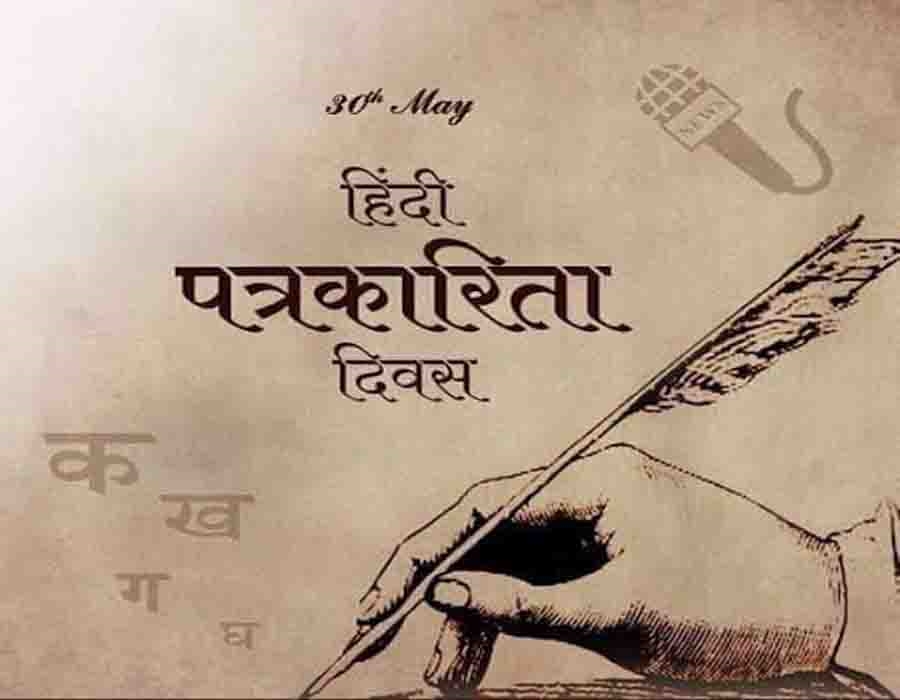 30th May
NEWS
हिंदी
पत्रकारिता
दिवस
क
ख
ग
घ